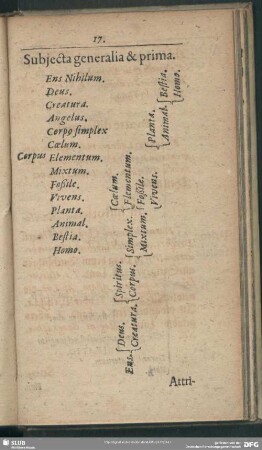 17.
Subjecta generalia & prima.
Ens Nihilum.
Deus.
Creatura.
Angelus.
Corpo simplex
Cœlum.
Corpus Elementum.
Mixtum.
Foßile.
Vivens.
Planta.
Animal.
Bestia.
Homo.
Ens. {Deus.
{Creatura. {Spiritus.
{Corpus. {Simplex. {Cœlum.
{Elementum.
{Mixtum. {Foßile.
{Vivens. {Planta.
{Animal. {Bestia.
{Homo.
Attri-
SLUB